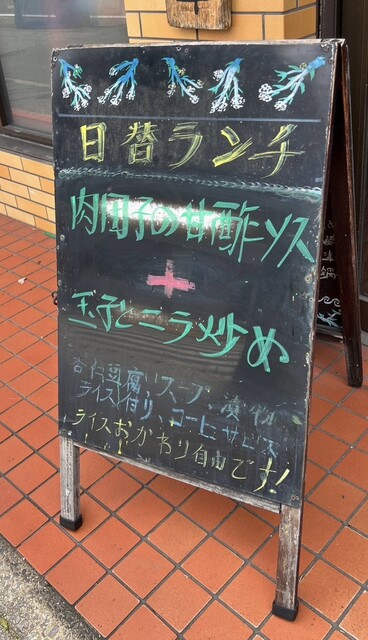 日替ランチ
肉団子の甘酢ソース
+
玉子とニラ炒め
杏仁豆腐、スープ、漬物
ライス付り、コーヒーサービス
ライスおかわり自由です!